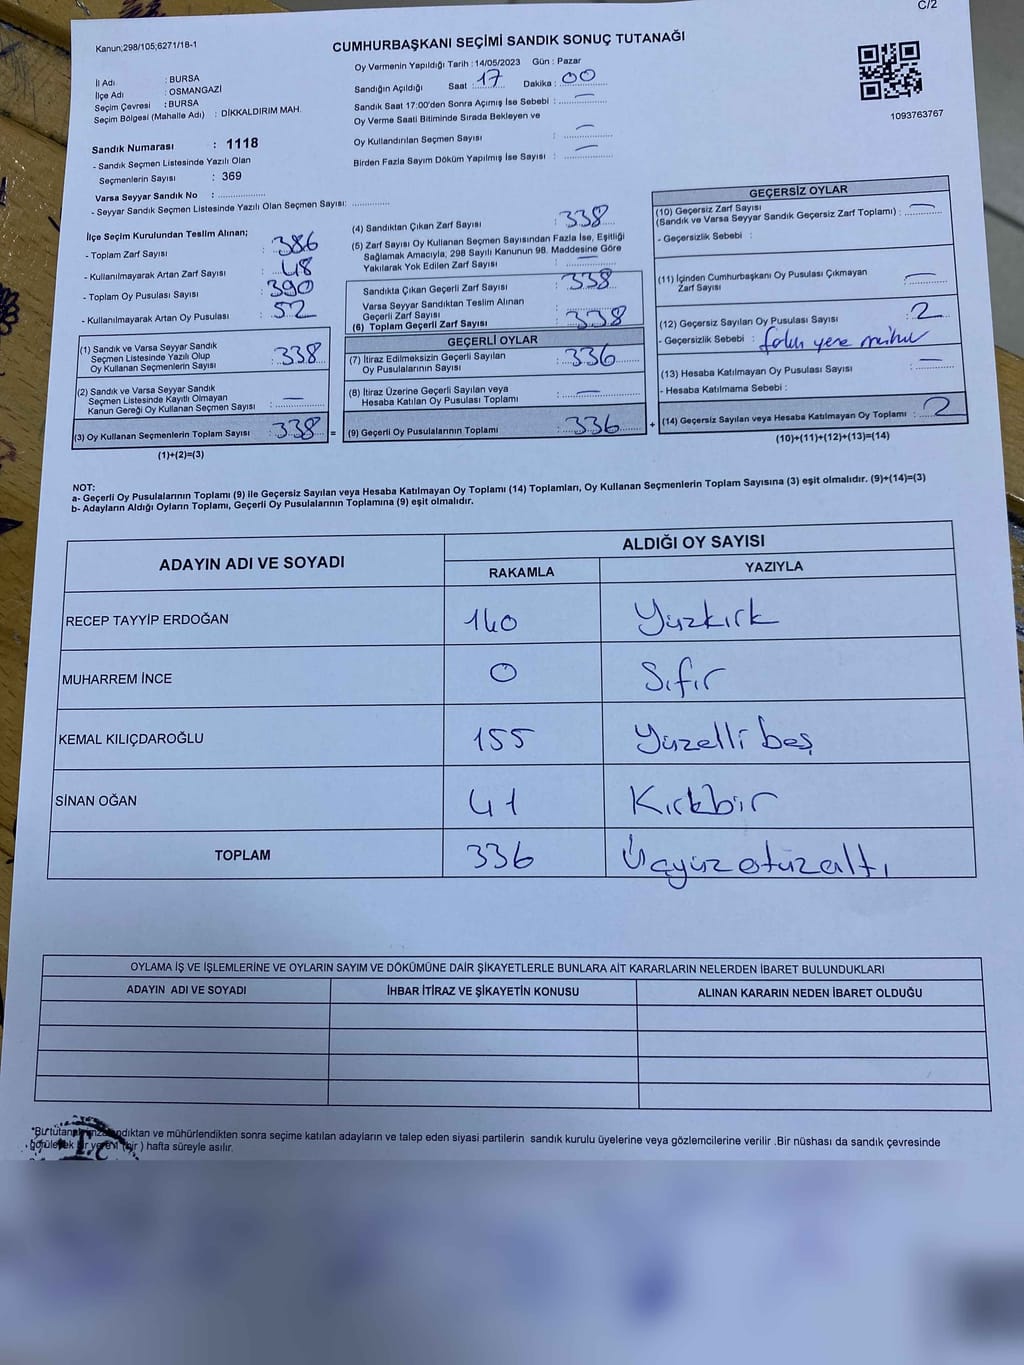 C/2
Kanun;298/105;6271/18-1
CUMHURBAŞKANI SEÇİMİ SANDIK SONUÇ TUTANAĞI
Oy Vermenin Yapıldığı Tarih : 14/05/2023 Gün : Pazar
İl Adı : BURSA
İlçe Adı : OSMANGAZİ
Seçim Çevresi : BURSA
Seçim Bölgesi (Mahalle Adı) : DİKKALDIRIM MAH.
Sandığın Açıldığı Saat : 17 Dakika : 00
Sandık Saat 17:00'den Sonra Açımış İse Sebebi : —
Oy Verme Saati Bitiminde Sırada Bekleyen ve
Oy Kullandırılan Seçmen Sayısı : —
Birden Fazla Sayım Döküm Yapılmış İse Sayısı : —
1093763767
Sandık Numarası : 1118
- Sandık Seçmen Listesinde Yazılı Olan
Seçmenlerin Sayısı : 369
Varsa Seyyar Sandık No : ..............
- Seyyar Sandık Seçmen Listesinde Yazılı Olan Seçmen Sayısı: ............
İlçe Seçim Kurulundan Teslim Alınan;
- Toplam Zarf Sayısı : 386
- Kullanılmayarak Artan Zarf Sayısı : 48
- Toplam Oy Pusulası Sayısı : 390
- Kullanılmayarak Artan Oy Pusulası : 52
(1) Sandık ve Varsa Seyyar Sandık
Seçmen Listesinde Yazılı Olup
Oy Kullanan Seçmenlerin Sayısı : 338
(2) Sandık ve Varsa Seyyar Sandık
Seçmen Listesinde Kayıtlı Olmayan
Kanun Gereği Oy Kullanan Seçmen Sayısı : —
(3) Oy Kullanan Seçmenlerin Toplam Sayısı : 338 =
(1)+(2)=(3)
(4) Sandıktan Çıkan Zarf Sayısı : 338
(5) Zarf Sayısı Oy Kullanan Seçmen Sayısından Fazla İse, Eşitliği
Sağlamak Amacıyla, 298 Sayılı Kanunun 98. Maddesine Göre
Yakılarak Yok Edilen Zarf Sayısı : —
Sandıkta Çıkan Geçerli Zarf Sayısı : 338
Varsa Seyyar Sandıktan Teslim Alınan
Geçerli Zarf Sayısı
(6) Toplam Geçerli Zarf Sayısı : 338
GEÇERLİ OYLAR
(7) İtiraz Edilmeksizin Geçerli Sayılan
Oy Pusulalarının Sayısı : 336
(8) İtiraz Üzerine Geçerli Sayılan veya
Hesaba Katılan Oy Pusulası Toplamı : —
(9) Geçerli Oy Pusulalarının Toplamı : 336 +
GEÇERSİZ OYLAR
(10) Geçersiz Zarf Sayısı
(Sandık ve Varsa Seyyar Sandık Geçersiz Zarf Toplamı) : —
- Geçersizlik Sebebi :
(11) İçinden Cumhurbaşkanı Oy Pusulası Çıkmayan
Zarf Sayısı : —
(12) Geçersiz Sayılan Oy Pusulası Sayısı : 2
- Geçersizlik Sebebi : yere mühür
(13) Hesaba Katılmayan Oy Pusulası Sayısı : —
- Hesaba Katılmama Sebebi :
(14) Geçersiz Sayılan veya Hesaba Katılmayan Oy Toplamı : 2
(10)+(11)+(12)+(13)=(14)
NOT:
a- Geçerli Oy Pusulalarının Toplamı (9) ile Geçersiz Sayılan veya Hesaba Katılmayan Oy Toplamı (14) Toplamları, Oy Kullanan Seçmenlerin Toplam Sayısına (3) eşit olmalıdır. (9)+(14)=(3)
b- Adayların Aldığı Oyların Toplamı, Geçerli Oy Pusulalarının Toplamına (9) eşit olmalıdır.
ADAYIN ADI VE SOYADI ALDIĞI OY SAYISI
RAKAMLA YAZIYLA
RECEP TAYYİP ERDOĞAN 140 Yüzkırk
MUHARREM İNCE 0 Sıfır
KEMAL KILIÇDAROĞLU 155 Yüzelli beş
SİNAN OĞAN 41 Kırkbir
TOPLAM 336 Üçyüzotüzaltı
OYLAMA İŞ VE İŞLEMLERİNE VE OYLARIN SAYIM VE DÖKÜMÜNE DAİR ŞİKAYETLERLE BUNLARA AİT KARARLARIN NELERDEN İBARET BULUNDUKLARI
ADAYIN ADI VE SOYADI İHBAR İTİRAZ VE ŞİKAYETİN KONUSU ALINAN KARARIN NEDEN İBARET OLDUĞU
*Bu tutanak ndıktan ve mühürlendikten sonra seçime katılan adayların ve talep eden siyasi partilerin sandık kurulu üyelerine veya gözlemcilerine verilir .Bir nüshası da sandık çevresinde
(bir ) hafta süreyle asılır.
T.C